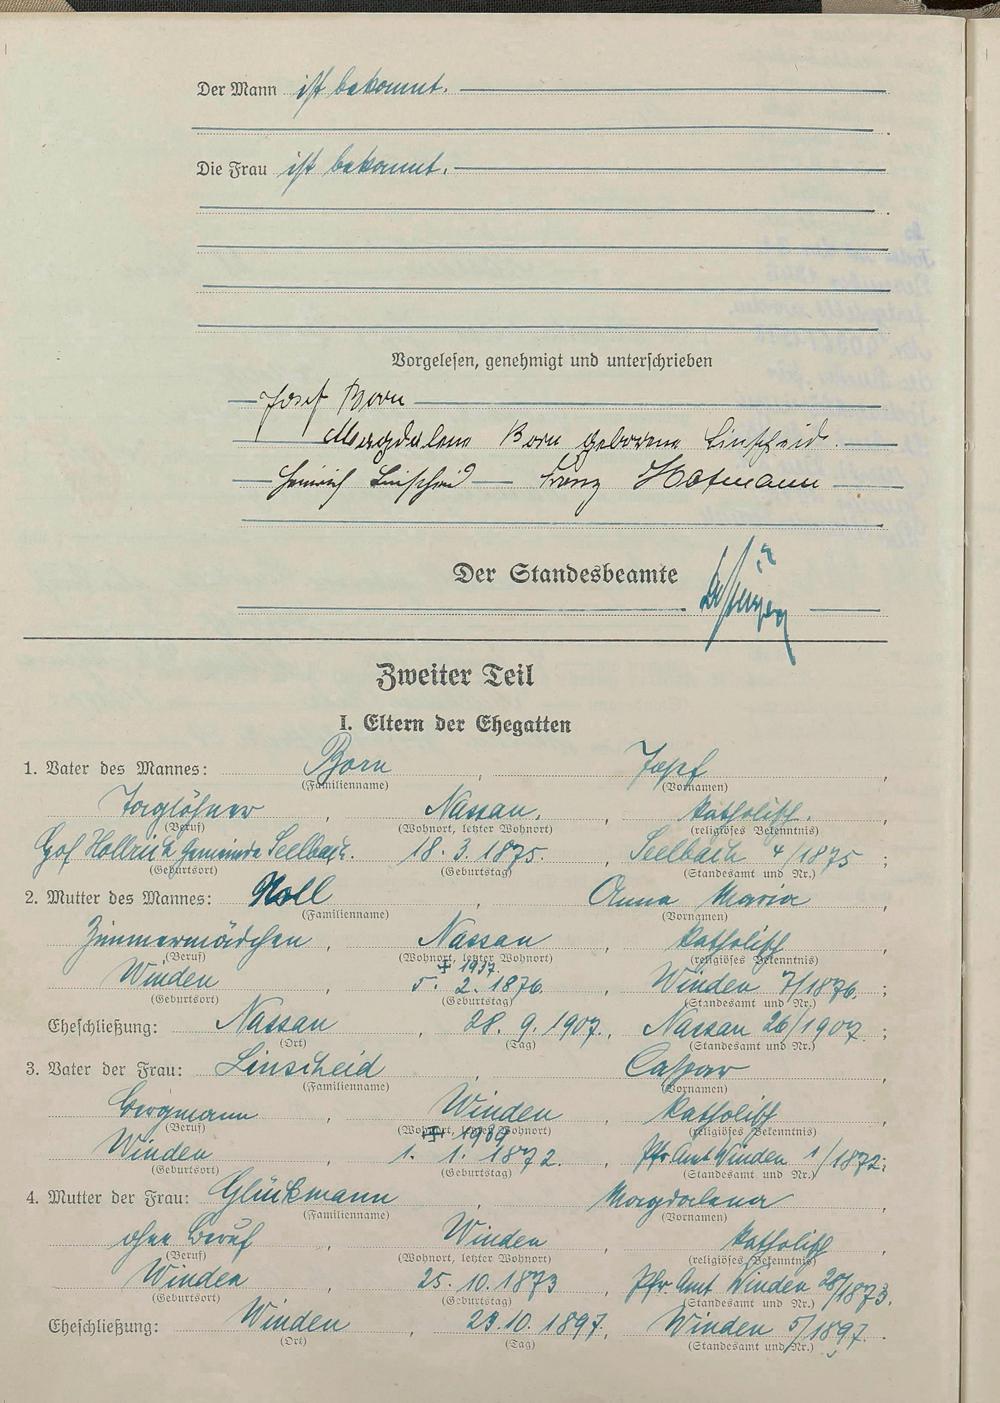 Der Mann ist bekannt.
Die Frau ist bekannt.
Vorgelesen, genehmigt und unterschrieben
Josef Born
Magdalena Born geborene Linscheid.
Heinrich Linscheid Franz Hofmann
Der Standesbeamte
Zweiter Teil
I. Eltern der Ehegatten
1. Vater des Mannes: Born, Josef,
(Familienname) (Vornamen)
Taglöhner, Nassau, katholisch,
(Beruf) (Wohnort, letzter Wohnort) (religiöses Bekenntnis)
Hof Hollrich Gemeinde Seelbach. 18. 3. 1875, Seelbach 4/1875;
(Geburtsort) (Geburtstag) (Standesamt und Nr.)
2. Mutter des Mannes: Noll, Anna Maria,
(Familienname) (Vornamen)
Zimmermädchen, Nassau, katholisch,
(Beruf) (Wohnort, letzter Wohnort) (religiöses Bekenntnis)
+ 1937.
Winden 5. 2. 1876, Winden 7/1876;
(Geburtsort) (Geburtstag) (Standesamt und Nr.)
Eheschließung: Nassau, 28. 9. 1907, Nassau 26/1907;
(Ort) (Tag) (Standesamt und Nr.)
3. Vater der Frau: Linscheid, Caspar,
(Familienname) (Vornamen)
Bergmann, Winden, katholisch,
(Beruf) (Wohnort, letzter Wohnort) (religiöses Bekenntnis)
Winden, 1. 1. 1872, Pfr. Amt Winden 1/1872;
(Geburtsort) (Geburtstag) (Standesamt und Nr.)
4. Mutter der Frau: Glückmann, Magdalena,
(Familienname) (Vornamen)
ohne Beruf, Winden, katholisch,
(Beruf) (Wohnort, letzter Wohnort) (religiöses Bekenntnis)
Winden, 25. 10. 1873, Pfr. Amt Winden 28/1873.
(Geburtsort) (Geburtstag) (Standesamt und Nr.)
Eheschließung: Winden, 23. 10. 1897, Winden 5/1897.
(Ort) (Tag) (Standesamt und Nr.)